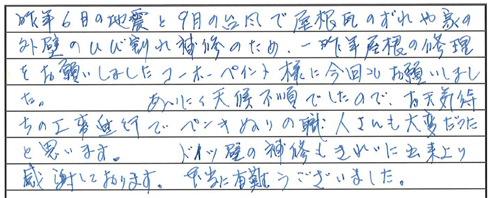 昨年6月の地震と9月の台風で屋根瓦のずれや家の
外壁のひび割れ補修のため、一昨年屋根の修理
をお願いしましたコーホーペイント様に今回もお願いしまし
た。 あいにく天候不順でしたので、お天気待
ちの工事進行でペンキぬりの職人さんも大変だった
と思います。 ドイツ壁の補修もきれいに出来上り
感謝しております。 本当に有難うございました。